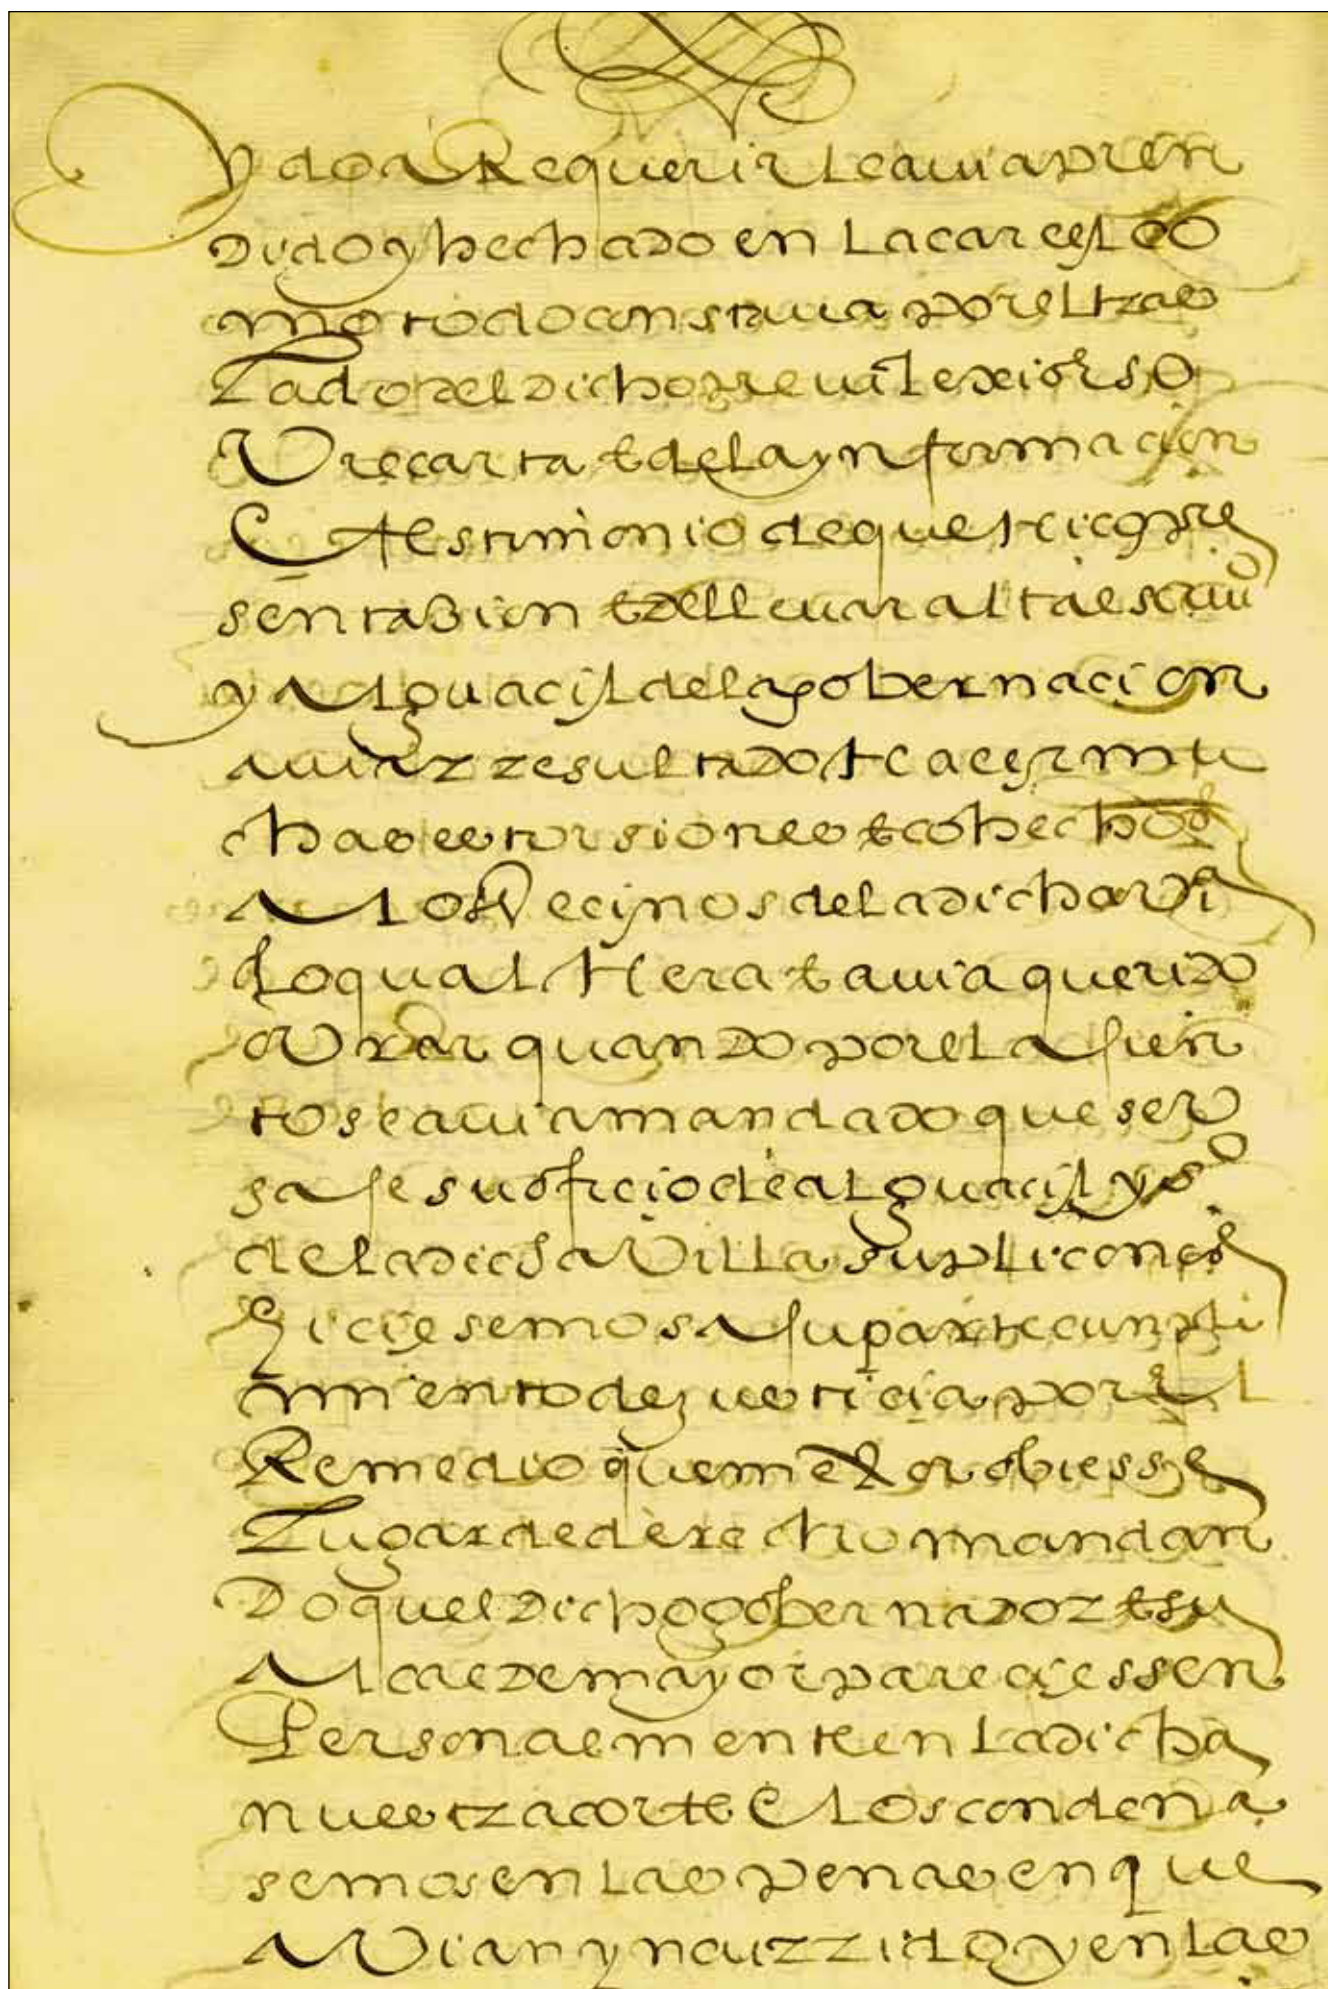 ydo a Requerir le auia pren
dido y hechado en la carcel co
mo todo constaua por el tras
lado del dicho preuilexio y so
Vre carta e de la ynformacion
E testimonio de que hacia pre
sentaZion e del lleuar al tal escriuº
y Alguacil de la gobernacion
auia rresultado hacer mu
chas estorsiones e cohechos
A los Vecinos de la dicha Vª
Lo qual hera e auia querido
oVrar quando por el asien
to se auia mandado que se v
sase su oficio de alguacil y sº
de la dicha Villa supliconos
hiciesemos a su parte cunpli
miento de justicia por el
Remedio que mexor obiesse
Lugar de derecho mandan
do quel dicho gobernador e su
Alcalde mayor pareciessen
Personalmente en la dicha
nuestra corte E los condena
semos en las penas en que
aVian yncurrido y en las